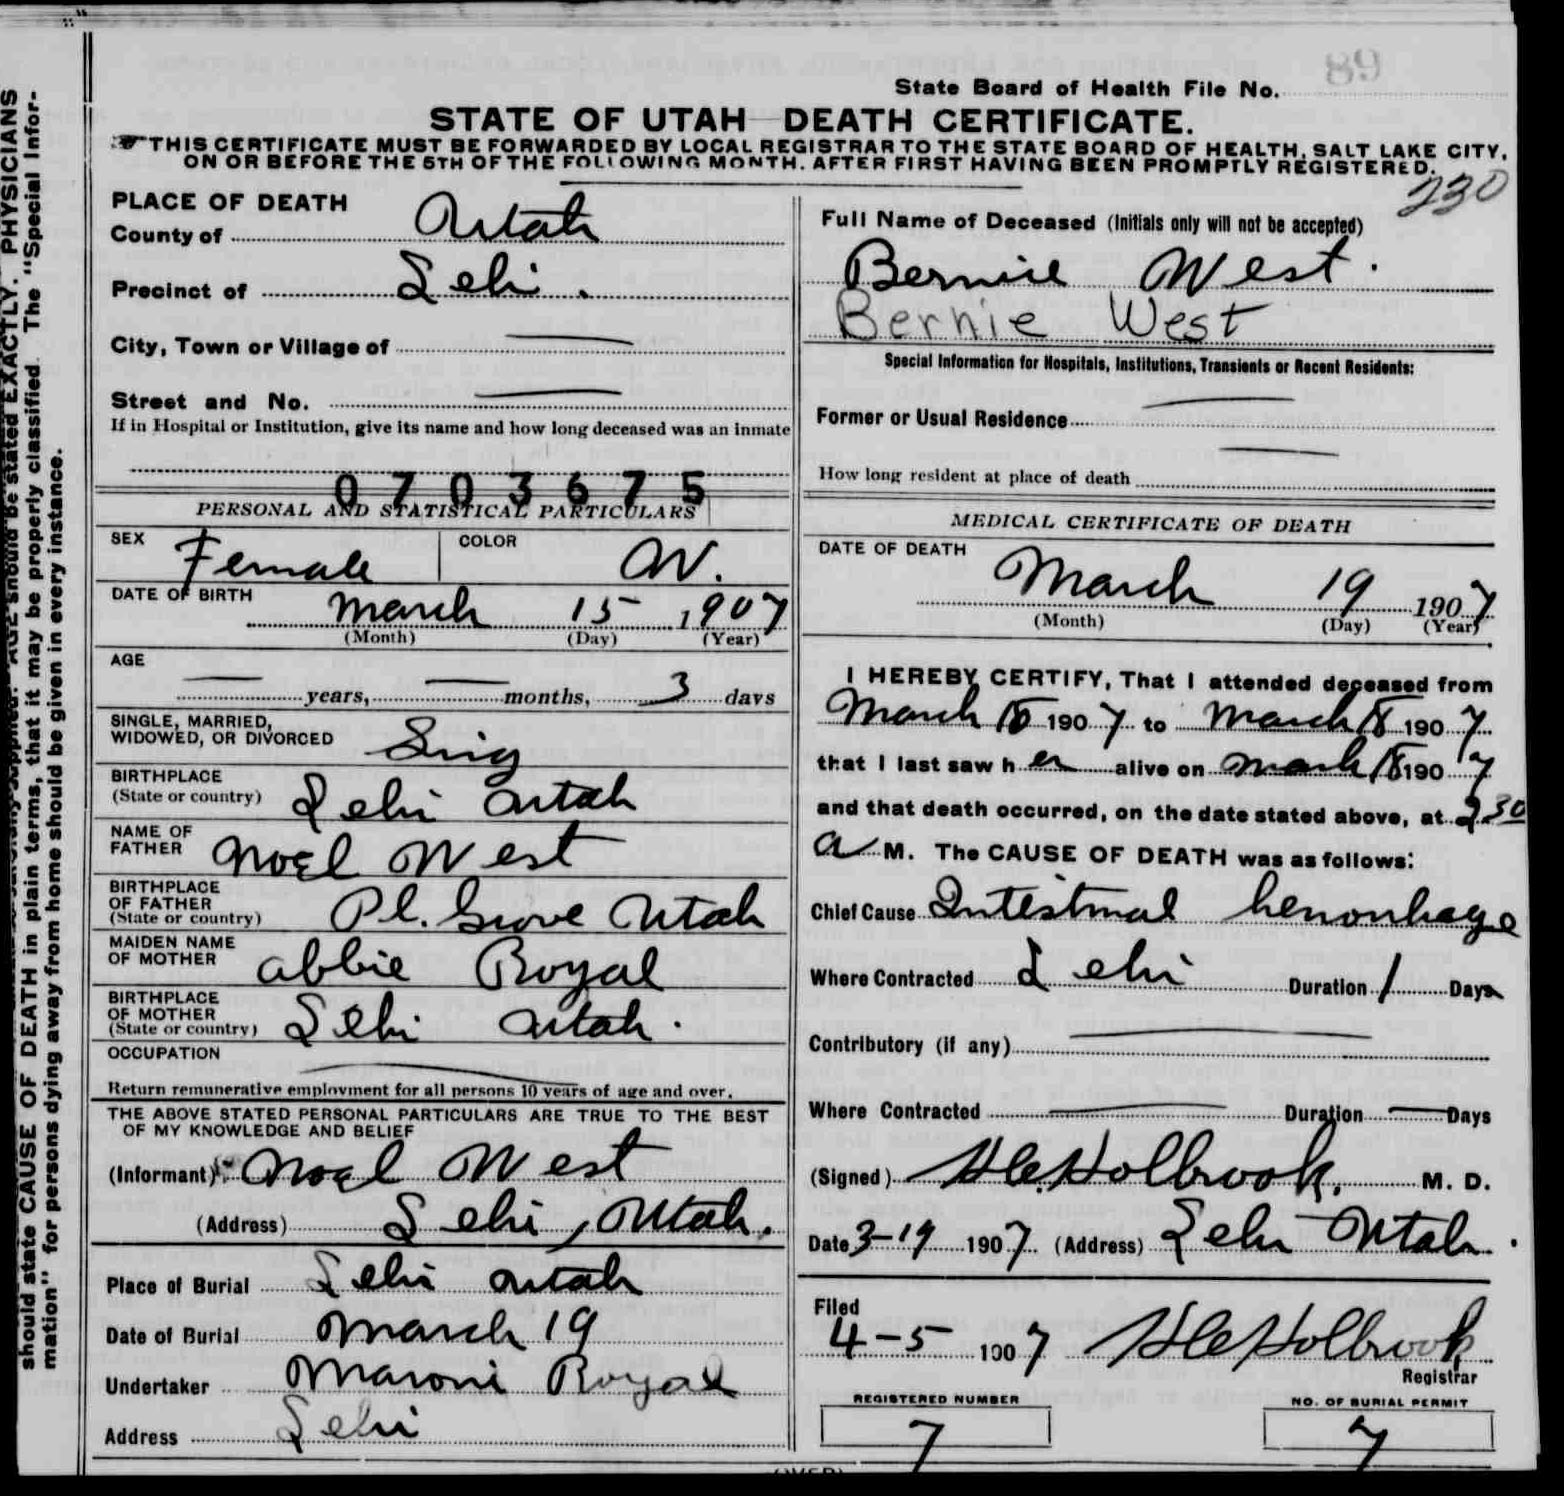 89
State Board of Health File No.
STATE OF UTAH DEATH CERTIFICATE.
THIS CERTIFICATE MUST BE FORWARDED BY LOCAL REGISTRAR TO THE STATE BOARD OF HEALTH, SALT LAKE CITY,
ON OR BEFORE THE 5TH OF THE FOLLOWING MONTH. AFTER FIRST HAVING BEEN PROMPTLY REGISTERED.
230
PLACE OF DEATH
County of Utah
Precinct of Lehi.
City, Town or Village of —
Street and No. —
If in Hospital or Institution, give its name and how long deceased was an inmate
0703675
PERSONAL AND STATISTICAL PARTICULARS
SEX Female COLOR W.
DATE OF BIRTH March 15, 1907
(Month) (Day) (Year)
AGE
— years, — months, 3 days
SINGLE, MARRIED,
WIDOWED, OR DIVORCED Sing
BIRTHPLACE
(State or country) Lehi Utah
NAME OF
FATHER Noel West
BIRTHPLACE
OF FATHER
(State or country) Pl. Grove Utah
MAIDEN NAME
OF MOTHER Abbie Royal
BIRTHPLACE
OF MOTHER
(State or country) Lehi Utah.
OCCUPATION —
Return remunerative employment for all persons 10 years of age and over.
THE ABOVE STATED PERSONAL PARTICULARS ARE TRUE TO THE BEST
OF MY KNOWLEDGE AND BELIEF
(Informant) Noel West
(Address) Lehi, Utah.
Place of Burial Lehi Utah
Date of Burial March 19
Undertaker Maroni Royal
Address Lehi
Full Name of Deceased (Initials only will not be accepted)
Bernie West.
Bernie West
Special Information for Hospitals, Institutions, Transients or Recent Residents:
Former or Usual Residence —
How long resident at place of death —
MEDICAL CERTIFICATE OF DEATH
DATE OF DEATH
March 19 1907
(Month) (Day) (Year)
I HEREBY CERTIFY, That I attended deceased from
March 15 1907 to March 18 1907
that I last saw her alive on March 18 1907
and that death occurred, on the date stated above, at 2 30
a M. The CAUSE OF DEATH was as follows:
Chief Cause Intestinal hemorrhage
Where Contracted Lehi Duration 1 Days
Contributory (if any) —
Where Contracted — Duration — Days
(Signed) H C Holbrook, M. D.
Date 3-19 1907 (Address) Lehi Utah.
Filed
4-5 1907 H C Holbrook
Registrar
REGISTERED NUMBER
7
NO. OF BURIAL PERMIT
7
(OVER)
PHYSICIANS
should state CAUSE OF DEATH in plain terms, that it may be properly classified. The "Special Infor-
mation" for persons dying away from home should be given in every instance.
AGE should be stated EXACTLY.